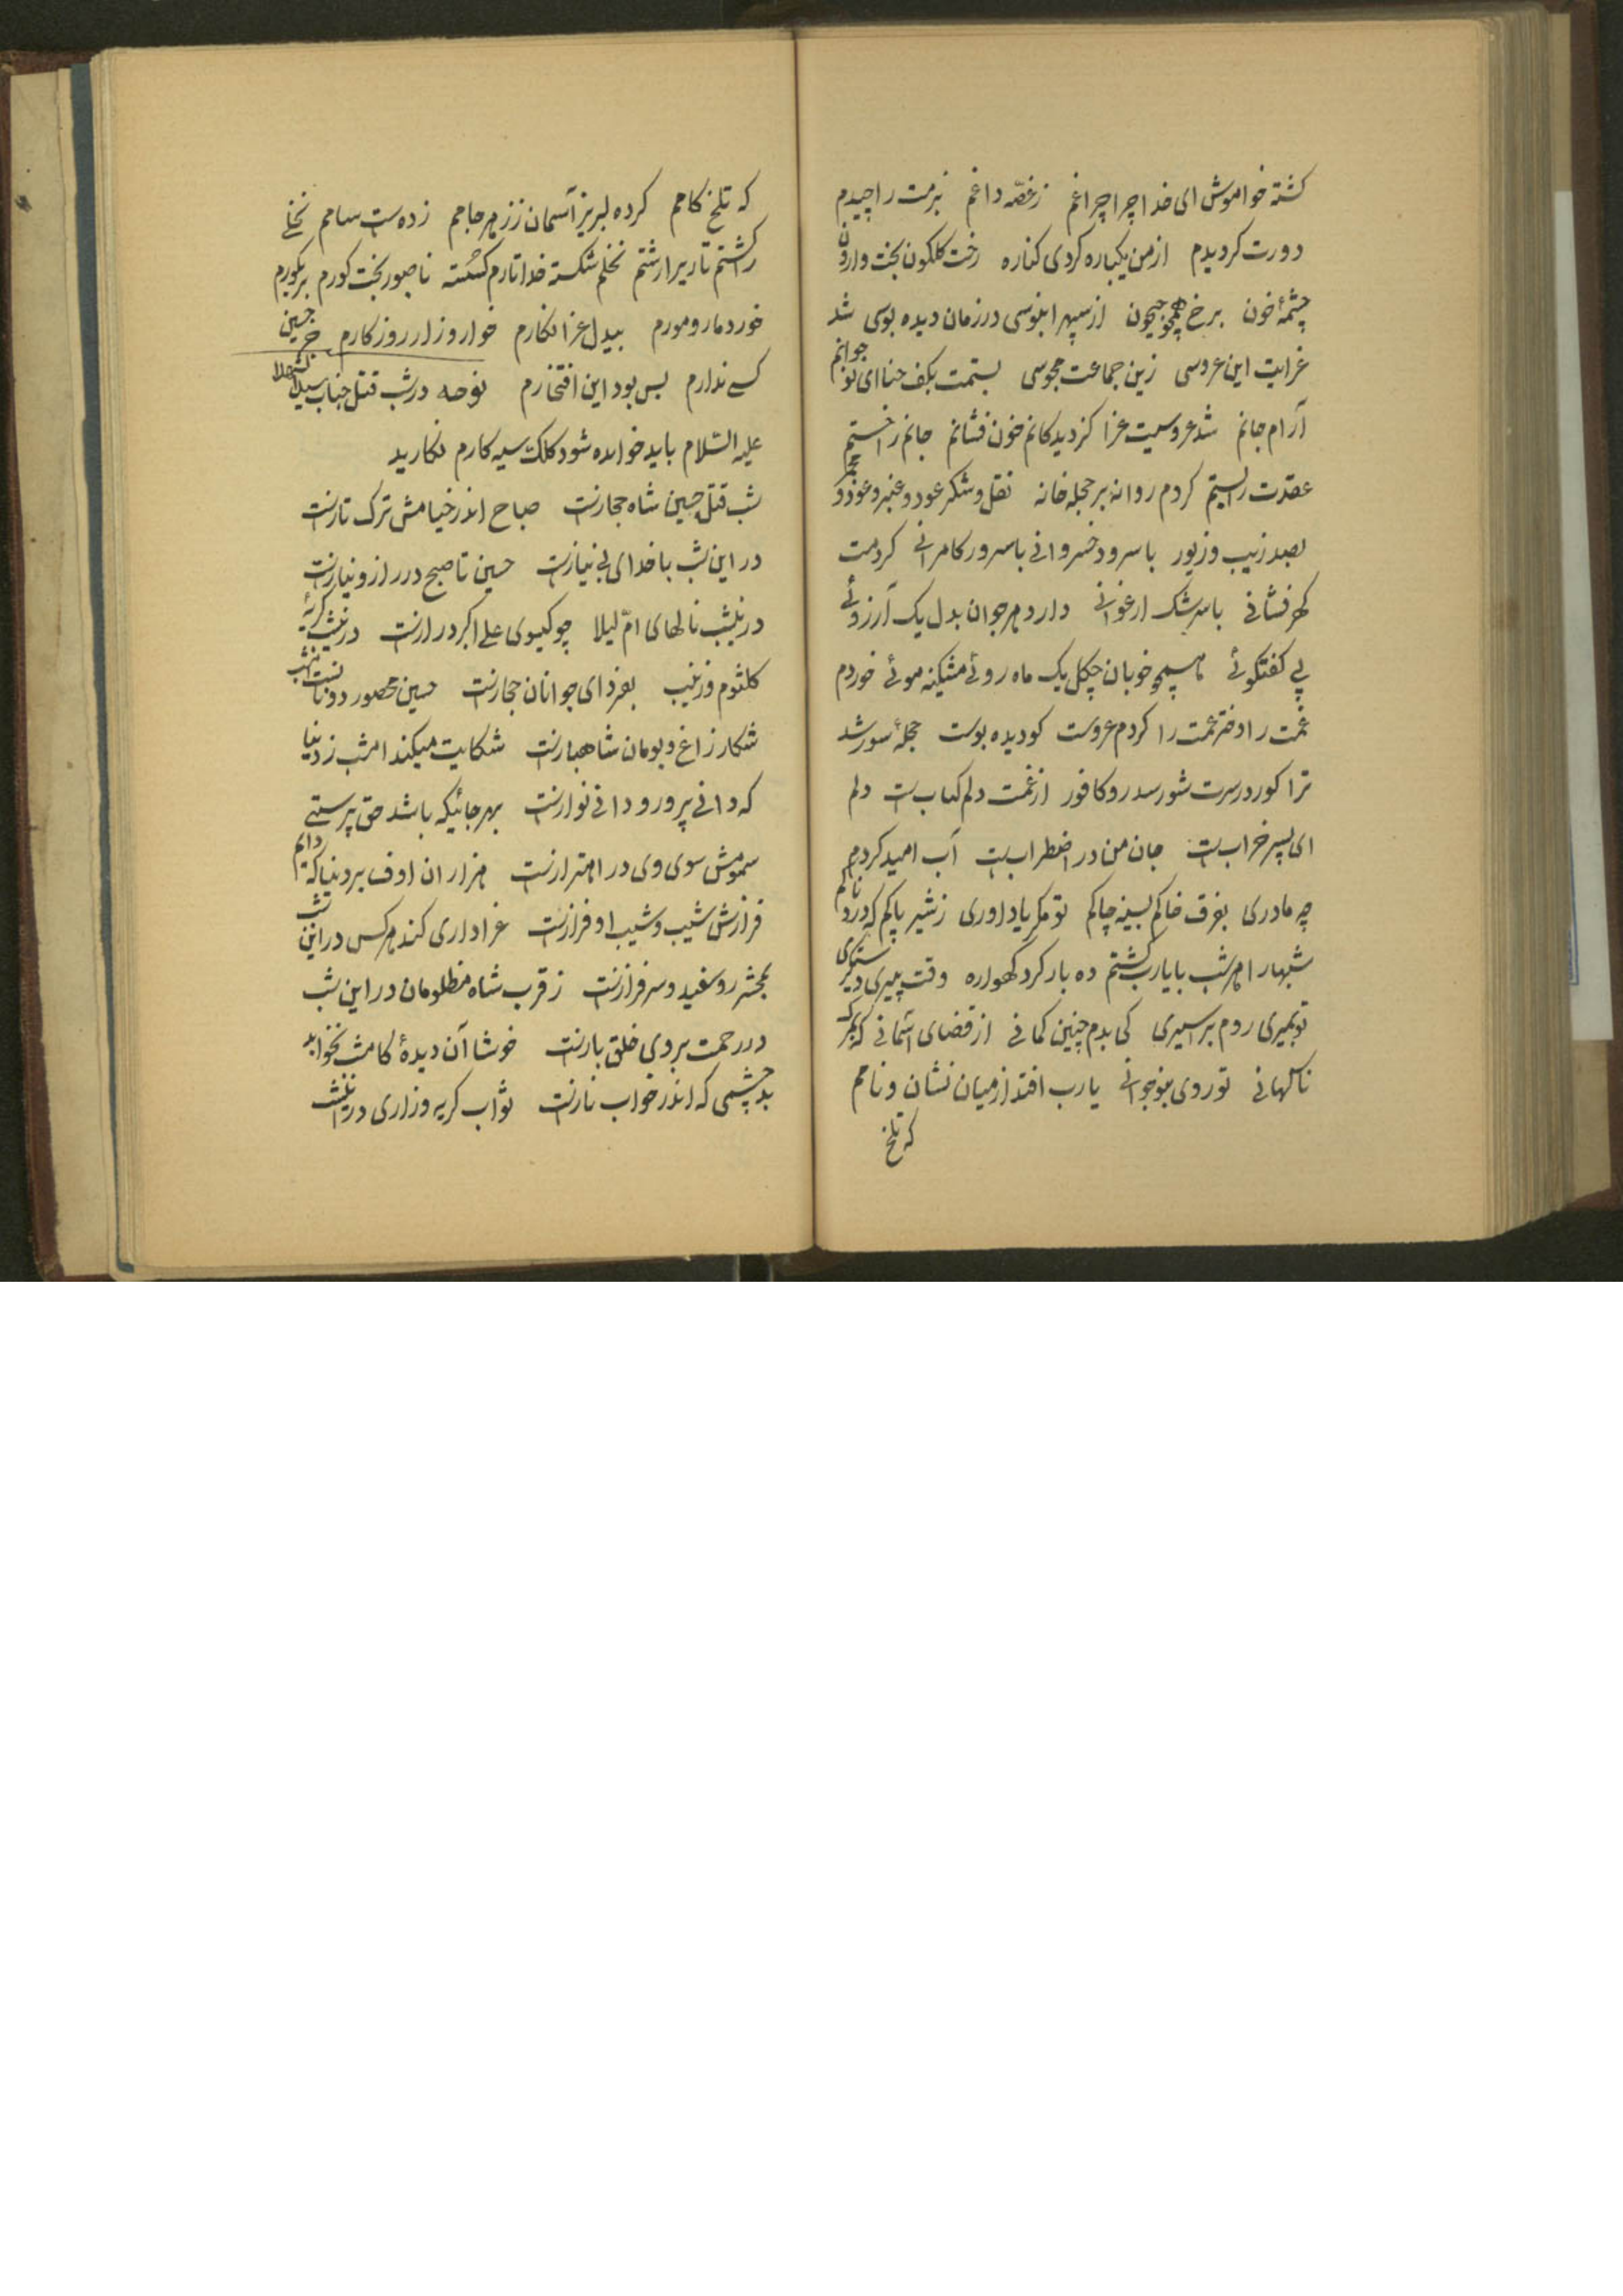 کشته خواموش ای خدا چرا چراغم زغصّه داغم بزمت را چیدم
دورت کردیدم از من یکباره کردی کناره رخت کلکون بخت وارون
چشمهٔ خون برخ همچو جیحون از سپهر ابنوسی در زمان دیده بوسی شد
عزایت این عروسی زین جماعت مجوسی بستمت بکف حنا ای نو جوانم
آرام جانم شد عروسیت عزا کز دیدکانم خون فشانم جانم را خستم
عقدت را بستم کردم روانه بر حجله خانه نقل و شکر عود و عنبر و عود و مجمر
بصد زیب و زیور با سرود خسروانی با سرور کامرانی کردمت
کهر فشانی با سرشک ارغوانی دارد هر جوان بدل یک آرزوئی
پی کفتکوئی همچو خوبان چکل یک ماه روئی مشکینه موئی خوردم
غمت را دختر عمت را کردم عروست کو دیده بوست حجلهٔ سور شد
ترا کور در سرت شور سدر و کافور از غمت دلم کباب است دلم
ای پسر خراب است جان من در اضطراب است آب امید کردم
چه مادری بفرق خاکم بسینه چاکم تو مکر یاد اوری زشیر پاکم که دردناکم
شبهارا هر شب با یارب کشتم ده بار کرد کهواره وقت پیری دستگیری
تو بمیری روم بر اسیری کی بدم چنین کمانی از قضای آسمانی که مرک
ناکهانی تو روی بنوجوانی یارب افتد از میان نشان و نامم
که تلخ
که تلخ کامم کرده لبریز آسمان ز زهر جامم زده ست سامم نخلی
را کشتم تا ریرا رشتم نخلم شکسته خدا تارم کسسته ناصبور بخت کورم بر کورم
خورد مار و مورم بیدل عزا نکارم خوار و زار روزکارم جز حسین
کسی ندارم بس بود این افتخارم نوحه در شب قتل جناب سید الشهدا
علیه السّلام باید خوانده شود کلک سیه کارم نکارید
شب قتل حسین شاه حجازست صباح اندر خیامش ترک تازست
در این شب با خدای بی نیازست حسین تا صبح در راز و نیازست
در ینشب نالهای امّ لیلا چو کیسوی علی اکبر درازست در ینشب کریهٔ
کلثوم و زینب بفردای جوانان حجازست حسین محصور دونانست امشب
شکار زاغ و بومان شاهبازست شکایت میکند امشب ز دنیا
که دانی پرور و دانی نوازست بهر جائیکه باشد حق پرستی
سمومش سوی وی در اهتزازست هزاران اوف بر دنیا که دایم
فرازش شیب و شیب او فرازست عزاداری کند هر کس در این شب
بمحشر رو سفید و سرفرازست ز قرب شاه مظلومان در این شب
در رحمت بروی خلق بازست خوشا آن دیدهٔ کامشب نخوابد
بد چشمی که اندر خواب نازست ثواب کریه و زاری در ینشب